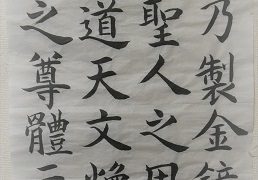 乃製金
聖人之
道天文煥
之尊體